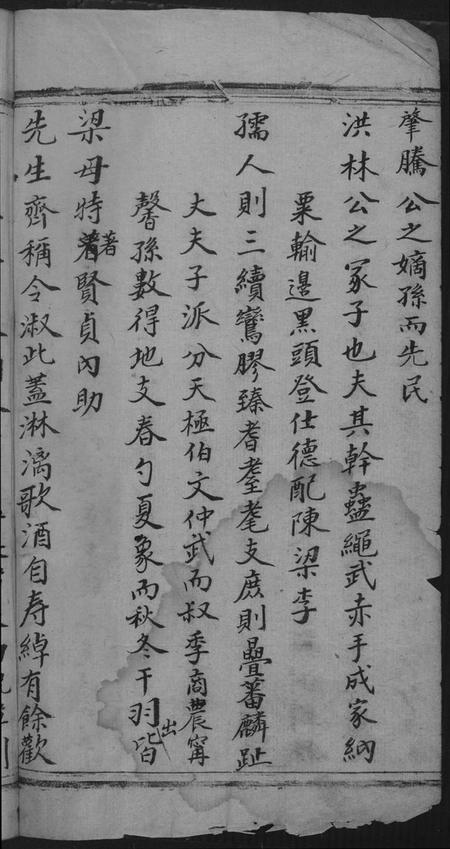 肇騰公之嫡孫而先民
洪林公之冢子也夫其幹蠱繩武赤手成家納
粟輸邊黑頭登仕德配陳梁李
孺人則三續鸞膠臻耆耋耄支庶則疊蕃麟趾
丈夫子派分天極伯文仲武而叔季商農甯
馨孫數得地支春勺夏象而秋冬干羽皆出
梁母特著賢貞內助
先生齊稱令淑此蓋淋漓歌酒自壽綽有餘歡